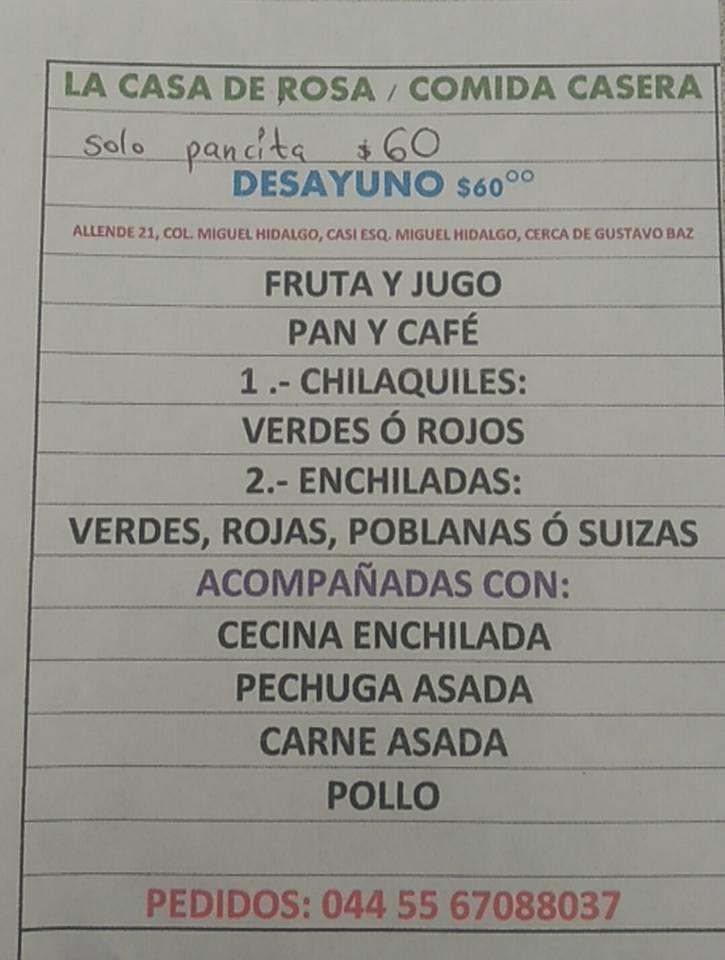 LA CASA DE ROSA / COMIDA CASERA
solo pancita $60
DESAYUNO $60⁰⁰
ALLENDE 21, COL. MIGUEL HIDALGO, CASI ESQ. MIGUEL HIDALGO, CERCA DE GUSTAVO BAZ
FRUTA Y JUGO
PAN Y CAFÉ
1 .- CHILAQUILES:
VERDES Ó ROJOS
2.- ENCHILADAS:
VERDES, ROJAS, POBLANAS Ó SUIZAS
ACOMPAÑADAS CON:
CECINA ENCHILADA
PECHUGA ASADA
CARNE ASADA
POLLO
PEDIDOS: 044 55 67088037